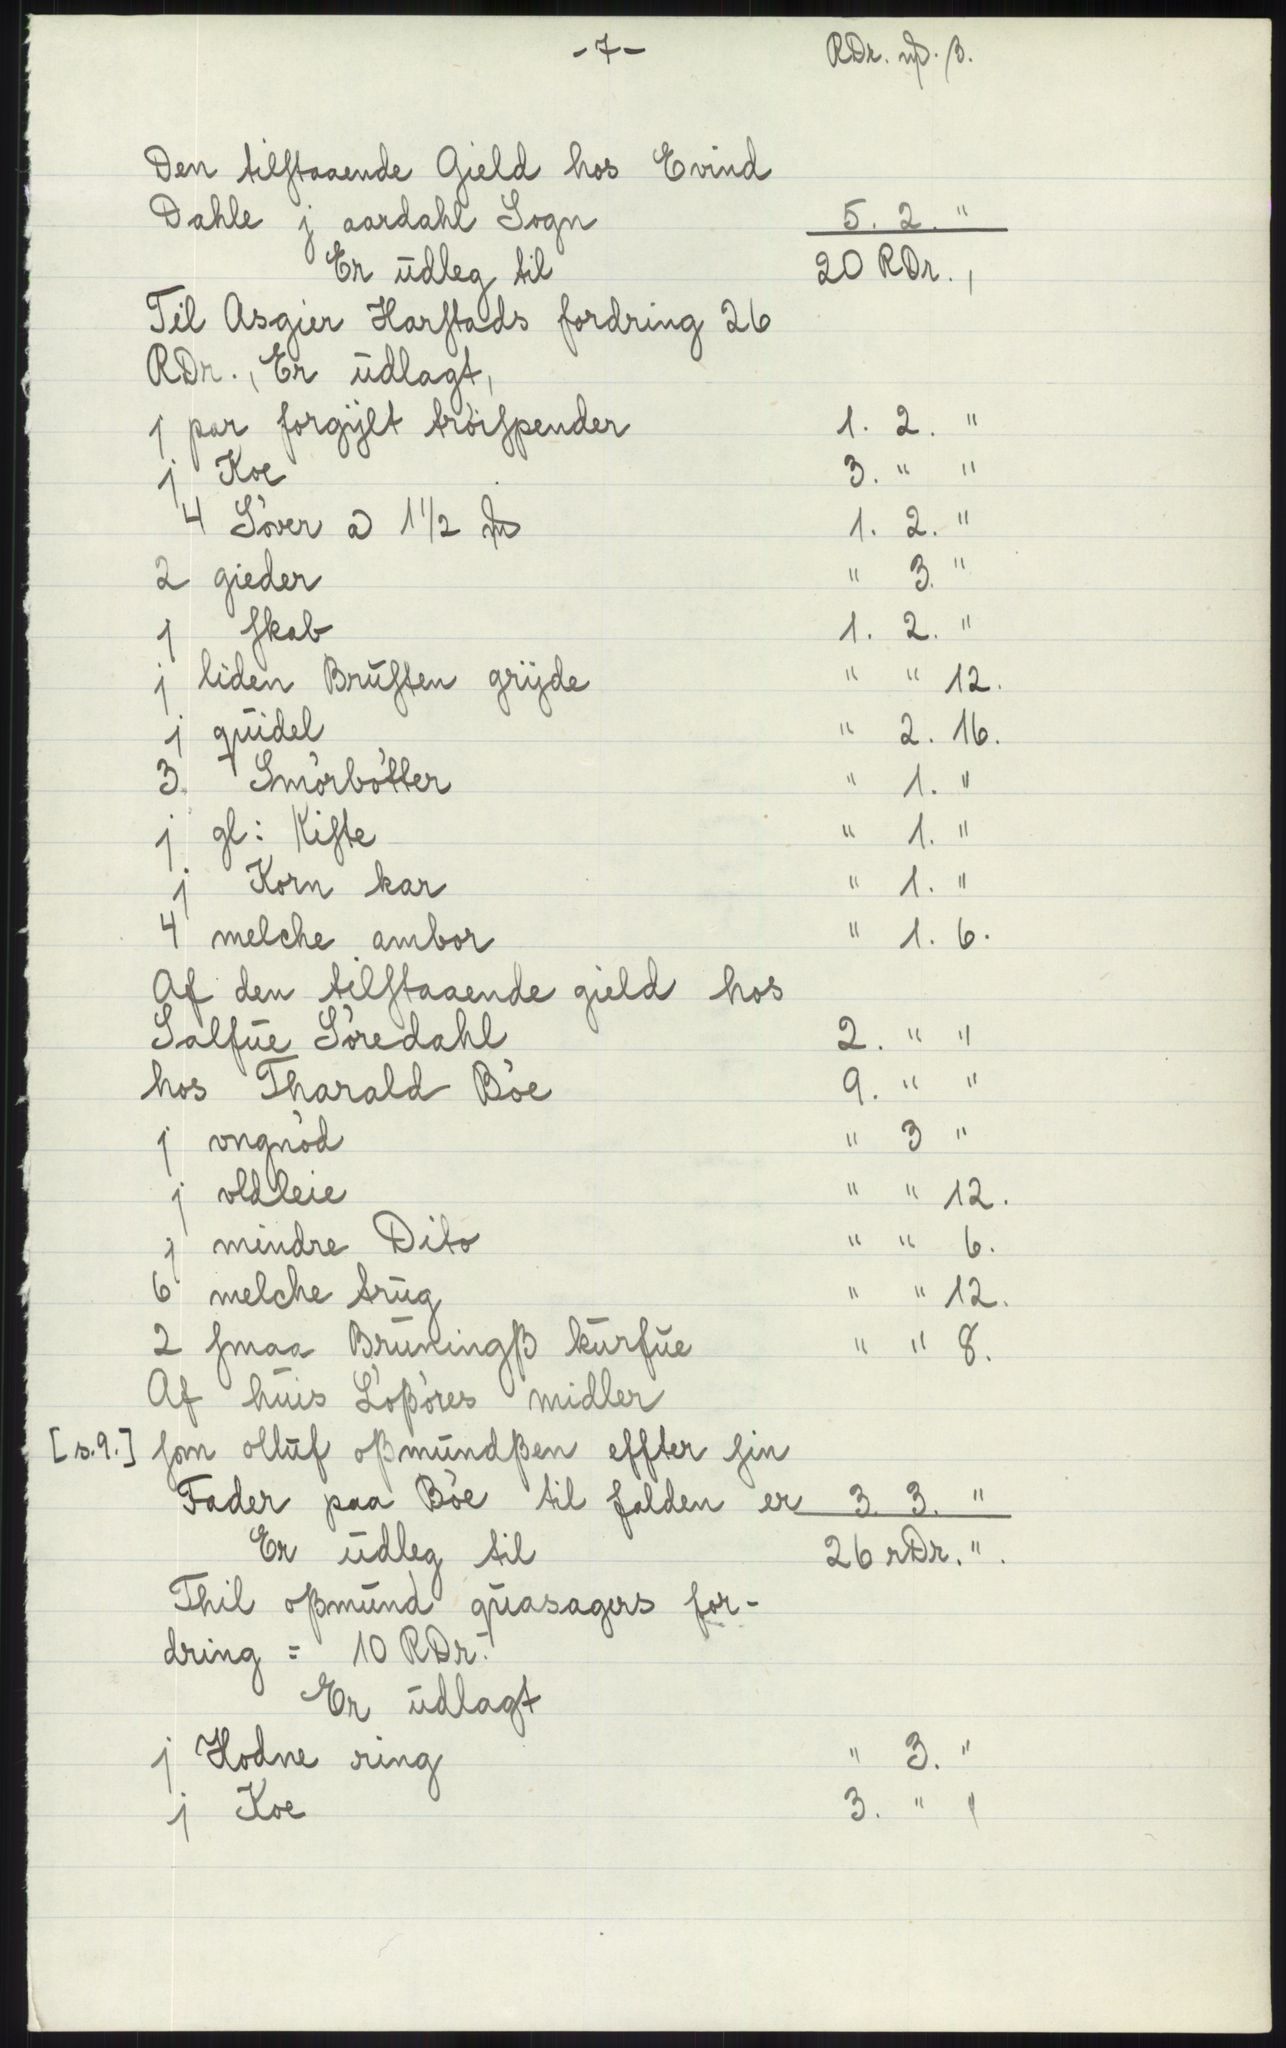 -7- RDr. mƥ. β.
Den tilstaaende Gield hos Evind
Dahle j aardahl Sogn 5. 2. "
Er ūdleg til 20 RDr.,
Til Asgier Harstads fordring 26
RDr., Er ūdlagt,
j par forgÿlt tröispender 1. 2. "
j Koe 3. " "
4 Söver a 1 1/2 mƥ 1. 2. "
2 gieder " 3. "
j skab 1. 2. "
j liden Brūsten grÿde " " 12.
j qūidel " 2. 16.
3. Smörbötter " 1. "
j gl: Kiste " 1. "
j Korn kar " 1. "
4 melche ambor " 1. 6.
Af den tilstaaende gield hos
Salfūe Söredahl 2. " "
hos Tharald Böe 9. " "
j vngnöd " 3 "
j vldleie " " 12.
j mindre Dito " " 6.
6 melche trūg " " 12.
2 smaa Brūningß kūrfūe " " 8.
Af hūis Lößöres midler
[s.9.] som ollūf oßmūndßen effter sin
Fader paa Böe til falden er 3. 3. "
Er ūdleg til 26 rDr. ".
Thil oßmūnd qūasagers for-
dring = 10 RDr.
Er ūdlagt
j Hodne ring " 3. "
j Koe 3. " "